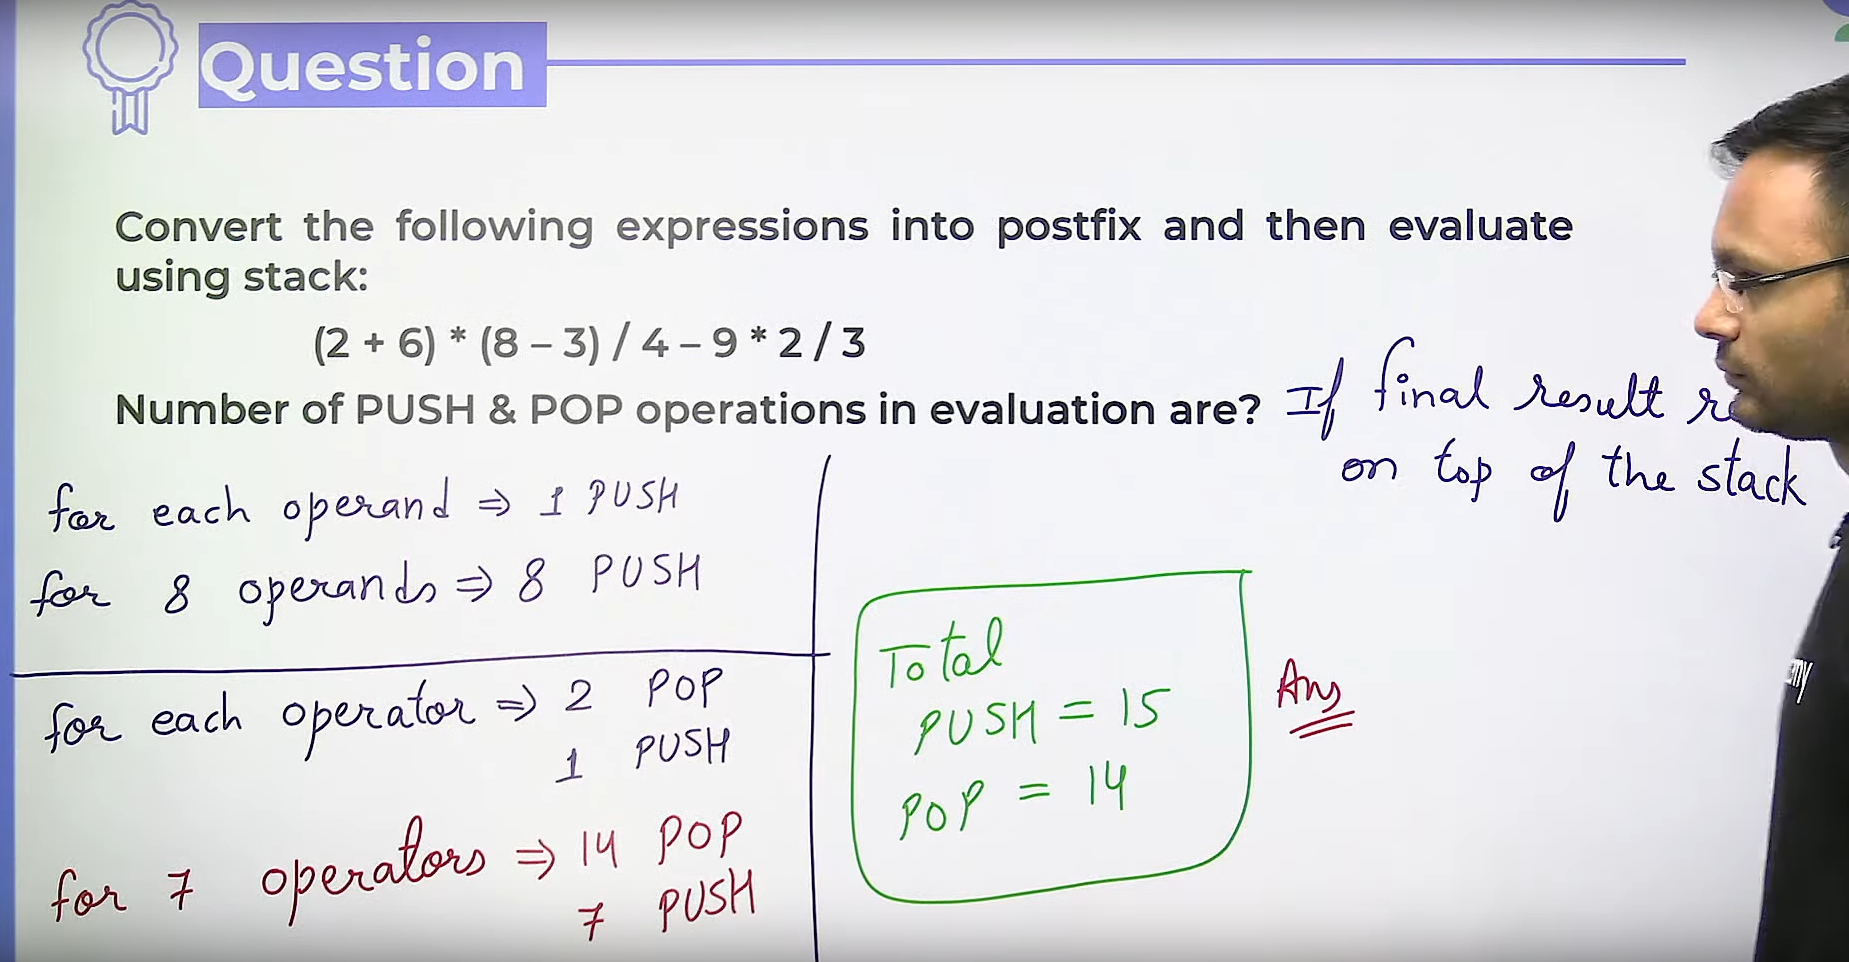 Question
Convert the following expressions into postfix and then evaluate
using stack:
(2 + 6) * (8 – 3) / 4 – 9 * 2 / 3
Number of PUSH & POP operations in evaluation are?
If final result
on top of the stack
for each operand ⇒ 1 PUSH
for 8 operands ⇒ 8 PUSH
for each operator ⇒ 2 POP
1 PUSH
for 7 operators ⇒ 14 POP
7 PUSH
Total
PUSH = 15
POP = 14
Ans